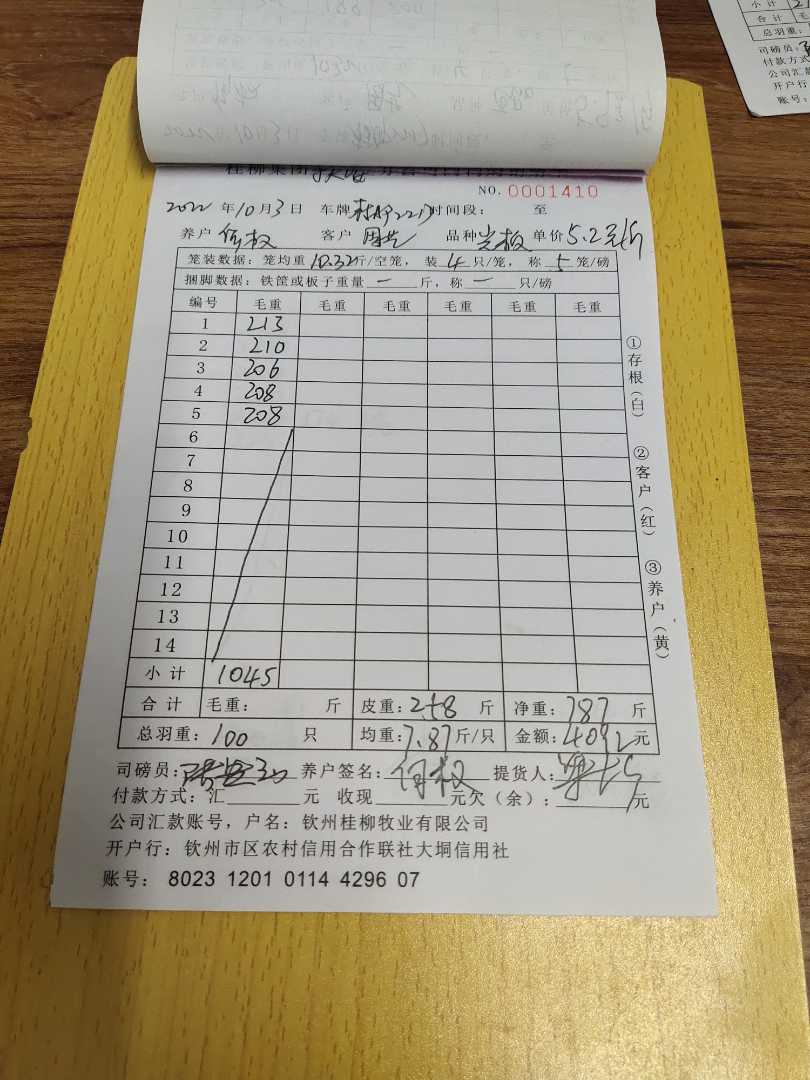 NO. 0001410
2022 年10月3日 车牌 时间段: 至
养户 何权 客户 品种 单价5.2元/斤
笼装数据: 笼均重 10.32斤/空笼, 装 4 只/笼, 称 5 笼/磅
捆脚数据: 铁筐或板子重量 一 斤, 称 一 只/磅
编号 毛重 毛重 毛重 毛重 毛重 毛重
1 213
2 210
3 206
4 208
5 208
6
7
8
9
10
11
12
13
14
小计 1045
合计 毛重: 斤 皮重: 258 斤 净重: 787 斤
总羽重: 100 只 均重: 7.87斤/只 金额: 4092元
司磅员: 养户签名: 何权 提货人:
付款方式: 汇 元 收现 元欠(余): 元
公司汇款账号, 户名: 钦州桂柳牧业有限公司
开户行: 钦州市区农村信用合作联社大垌信用社
账号: 8023 1201 0114 4296 07
①存根(白)
②客户(红)
③养户(黄)
小计
合计
总羽重:
司磅员:
付款方式
公司汇款
开户行
账号: